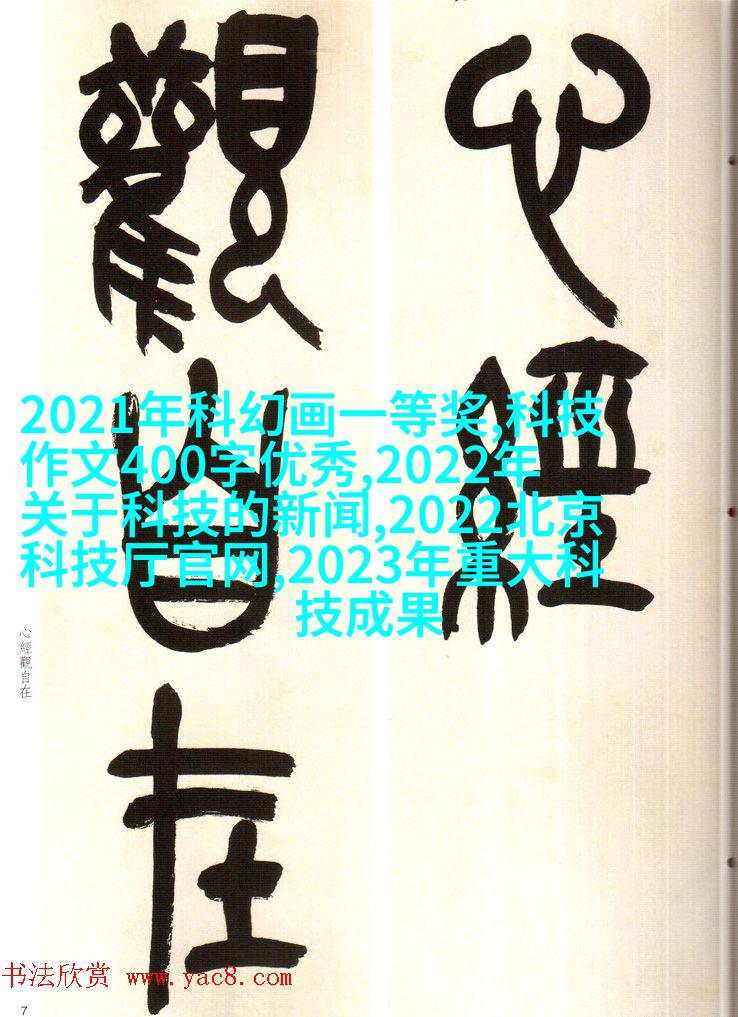 心經
觀自在
2021年科幻画一等奖,科技
作文400字优秀,2022年
关于科技的新闻,2022北京
科技厅官网,2023年重大科
技成果
心經觀自在
书法欣赏 www.yac8.com
7